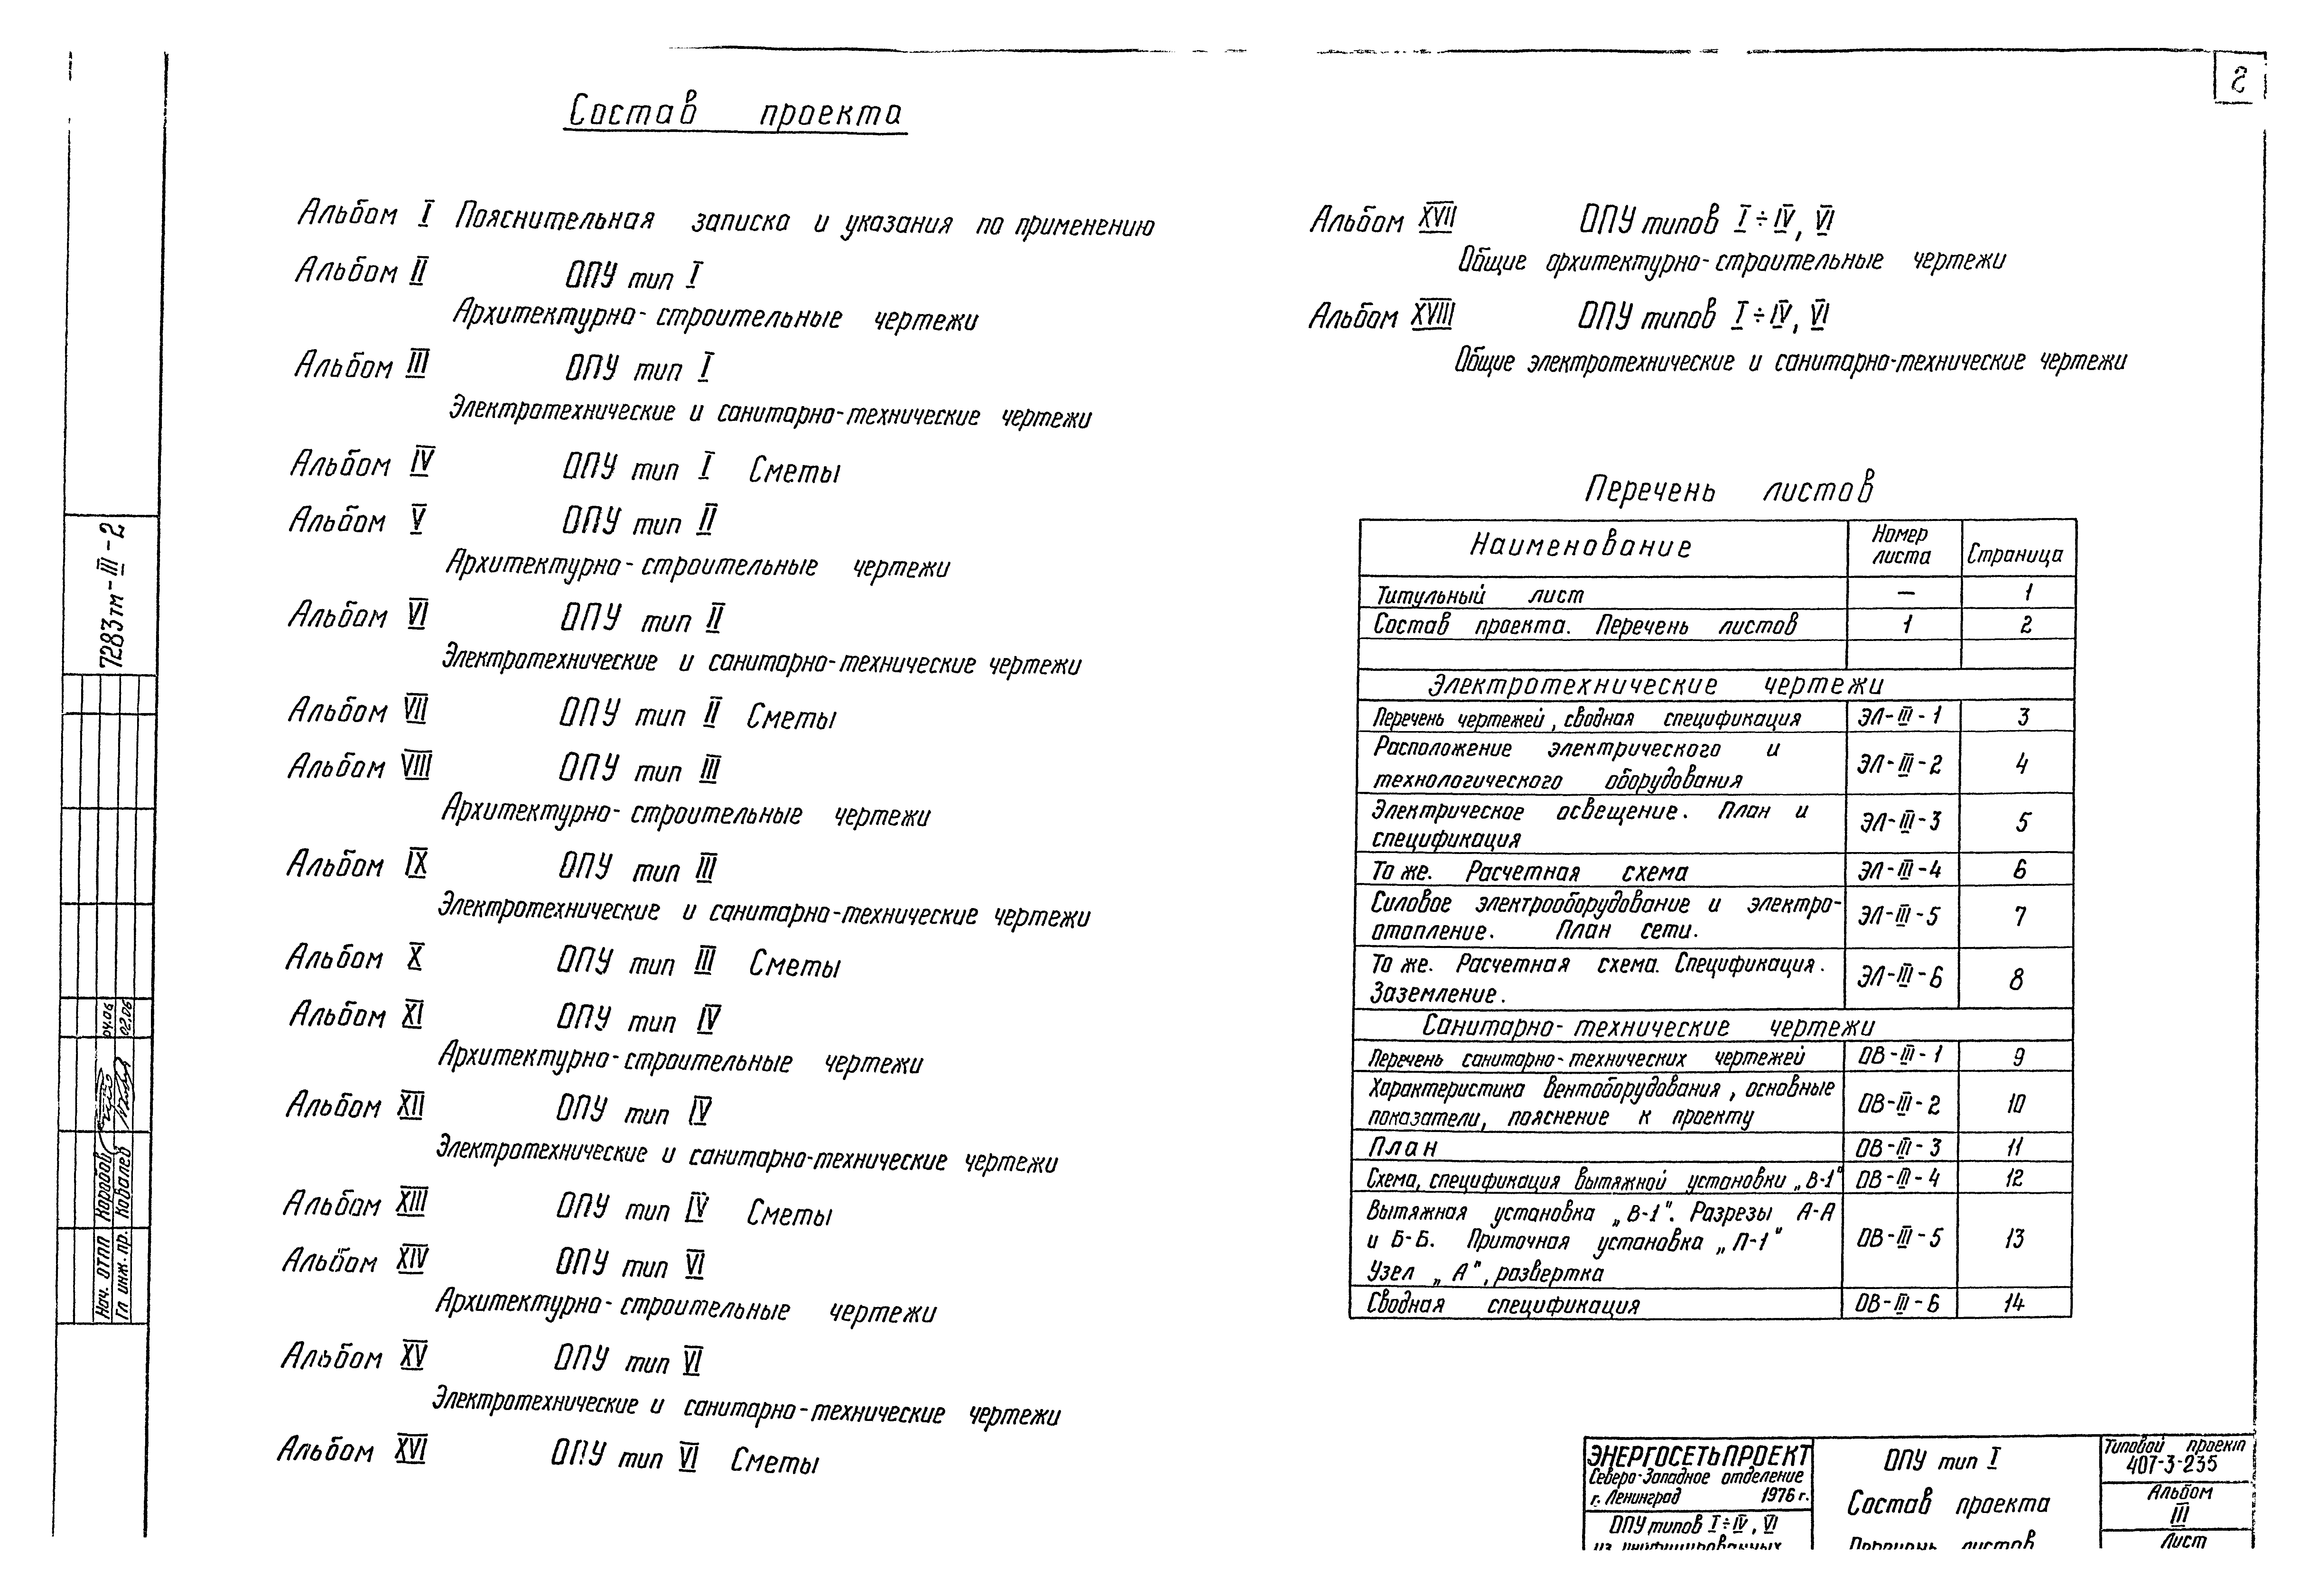 2
Состав проекта
Альбом I Пояснительная записка и указания по применению
Альбом II ОПУ тип I
Архитектурно-строительные чертежи
Альбом III ОПУ тип I
Электротехнические и санитарно-технические чертежи
Альбом IV ОПУ тип I Сметы
Альбом V ОПУ тип II
Архитектурно-строительные чертежи
Альбом VI ОПУ тип II
Электротехнические и санитарно-технические чертежи
Альбом VII ОПУ тип II Сметы
Альбом VIII ОПУ тип III
Архитектурно-строительные чертежи
Альбом IX ОПУ тип III
Электротехнические и санитарно-технические чертежи
Альбом X ОПУ тип III Сметы
Альбом XI ОПУ тип IV
Архитектурно-строительные чертежи
Альбом XII ОПУ тип IV
Электротехнические и санитарно-технические чертежи
Альбом XIII ОПУ тип IV Сметы
Альбом XIV ОПУ тип VI
Архитектурно-строительные чертежи
Альбом XV ОПУ тип VI
Электротехнические и санитарно-технические чертежи
Альбом XVI ОПУ тип VI Сметы
Альбом XVII ОПУ типов I÷IV, VI
Общие архитектурно-строительные чертежи
Альбом XVIII ОПУ типов I÷IV, VI
Общие электротехнические и санитарно-технические чертежи
Перечень листов
Наименование Номер листа Страница
Титульный лист — 1
Состав проекта. Перечень листов 1 2
Электротехнические чертежи
Перечень чертежей, сводная спецификация ЭЛ-III-1 3
Расположение электрического и
технологического оборудования ЭЛ-III-2 4
Электрическое освещение. План и
спецификация ЭЛ-III-3 5
То же. Расчетная схема ЭЛ-III-4 6
Силовое электрооборудование и электро-
отопление. План сети. ЭЛ-III-5 7
То же. Расчетная схема. Спецификация.
Заземление. ЭЛ-III-6 8
Санитарно-технические чертежи
Перечень санитарно-технических чертежей ОВ-III-1 9
Характеристика вентоборудования, основные
показатели, пояснение к проекту ОВ-III-2 10
План ОВ-III-3 11
Схема, спецификация вытяжной установки „В-1" ОВ-III-4 12
Вытяжная установка „В-1". Разрезы А-А
и Б-Б. Приточная установка „П-1" ОВ-III-5 13
Узел „А", развертка
Сводная спецификация ОВ-III-6 14
ЭНЕРГОСЕТЬПРОЕКТ
Северо-Западное отделение
г. Ленинград 1976 г.
ОПУ типов I÷IV, VI
из унифицированных
ОПУ тип I
Состав проекта
Перечень листов
Типовой проект
407-3-235
Альбом
III
Лист
7283тм-III-2
Нач. ОТПП Коробов
Гл инж. пр. Ковалев 02.06